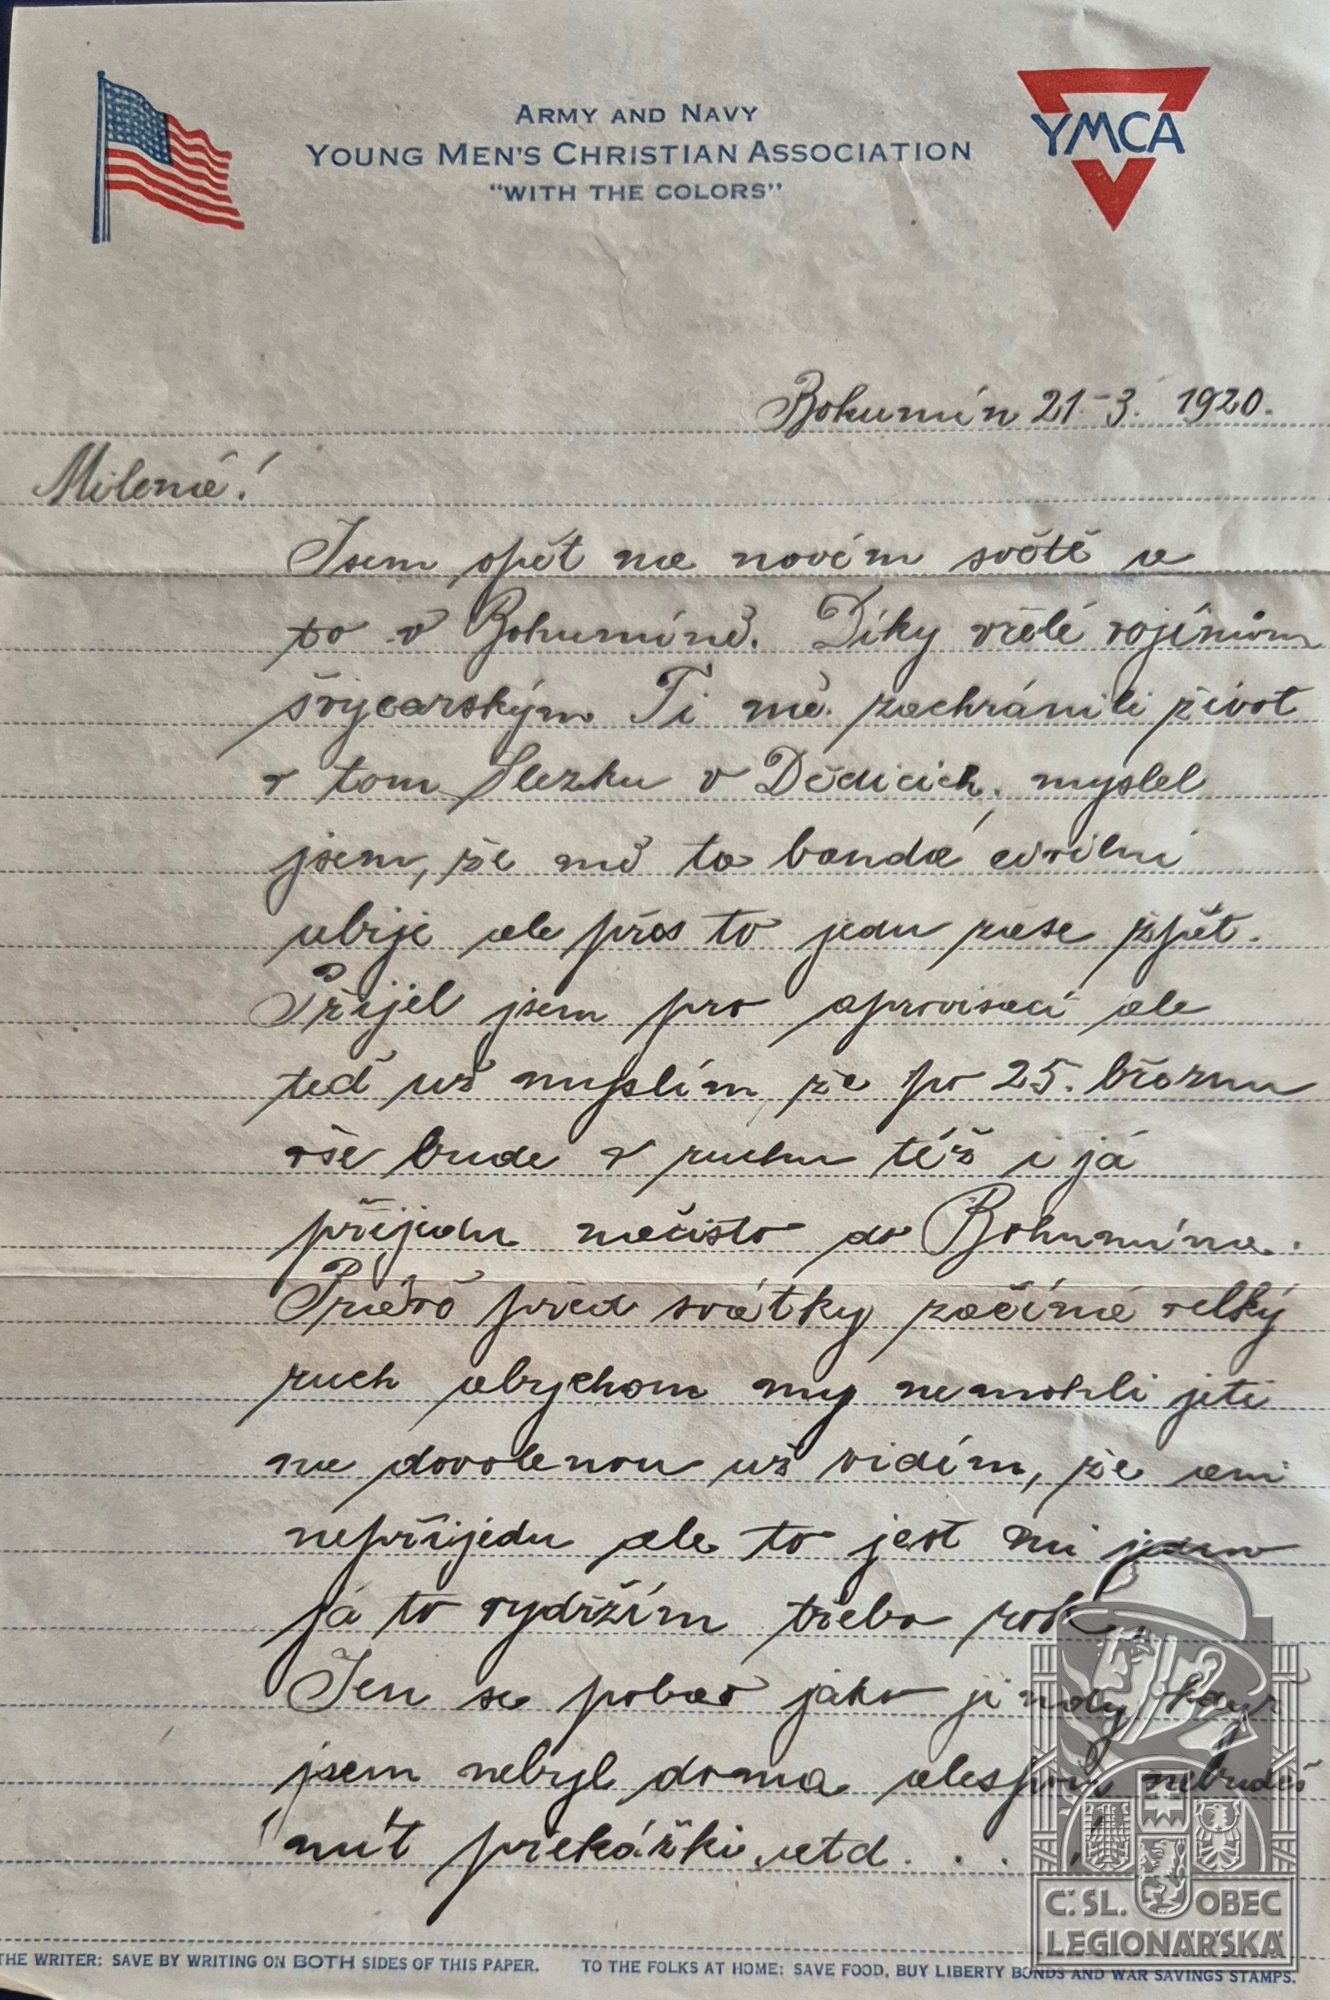 ARMY AND NAVY
YOUNG MEN'S CHRISTIAN ASSOCIATION
"WITH THE COLORS"
YMCA
Bohumín 21.-3. 1920.
Milená!
Jsem opět na novém světě a
to v Bohumíně. Díky vřelé vojínům
švýcarským Ti mě zachránili život
v tom Slezku v Dědicích, myslel
jsem, že mě ta banda civilní
ubije ale přes to jedu zase zpět.
Přijel jsem pro aprovisaci ale
teď už myslím že po 25. březnu
vše bude v ruchu též i já
přijedu načisto do Bohumína.
Právě před svátky začíná velký
ruch abychom my nemohli jeti
na dovolenou už vidím, že ani
nepřijedu ale to jest mi jedno
já to vydržím třeba rok.
Jen se pobav jako jindy když
jsem nebyl doma alespoň nebudeš
mít překážki atd. . . .
THE WRITER: SAVE BY WRITING ON BOTH SIDES OF THIS PAPER. TO THE FOLKS AT HOME: SAVE FOOD, BUY LIBERTY BONDS AND WAR SAVINGS STAMPS.
Č. SL. OBEC
LEGIONÁŘSKÁ